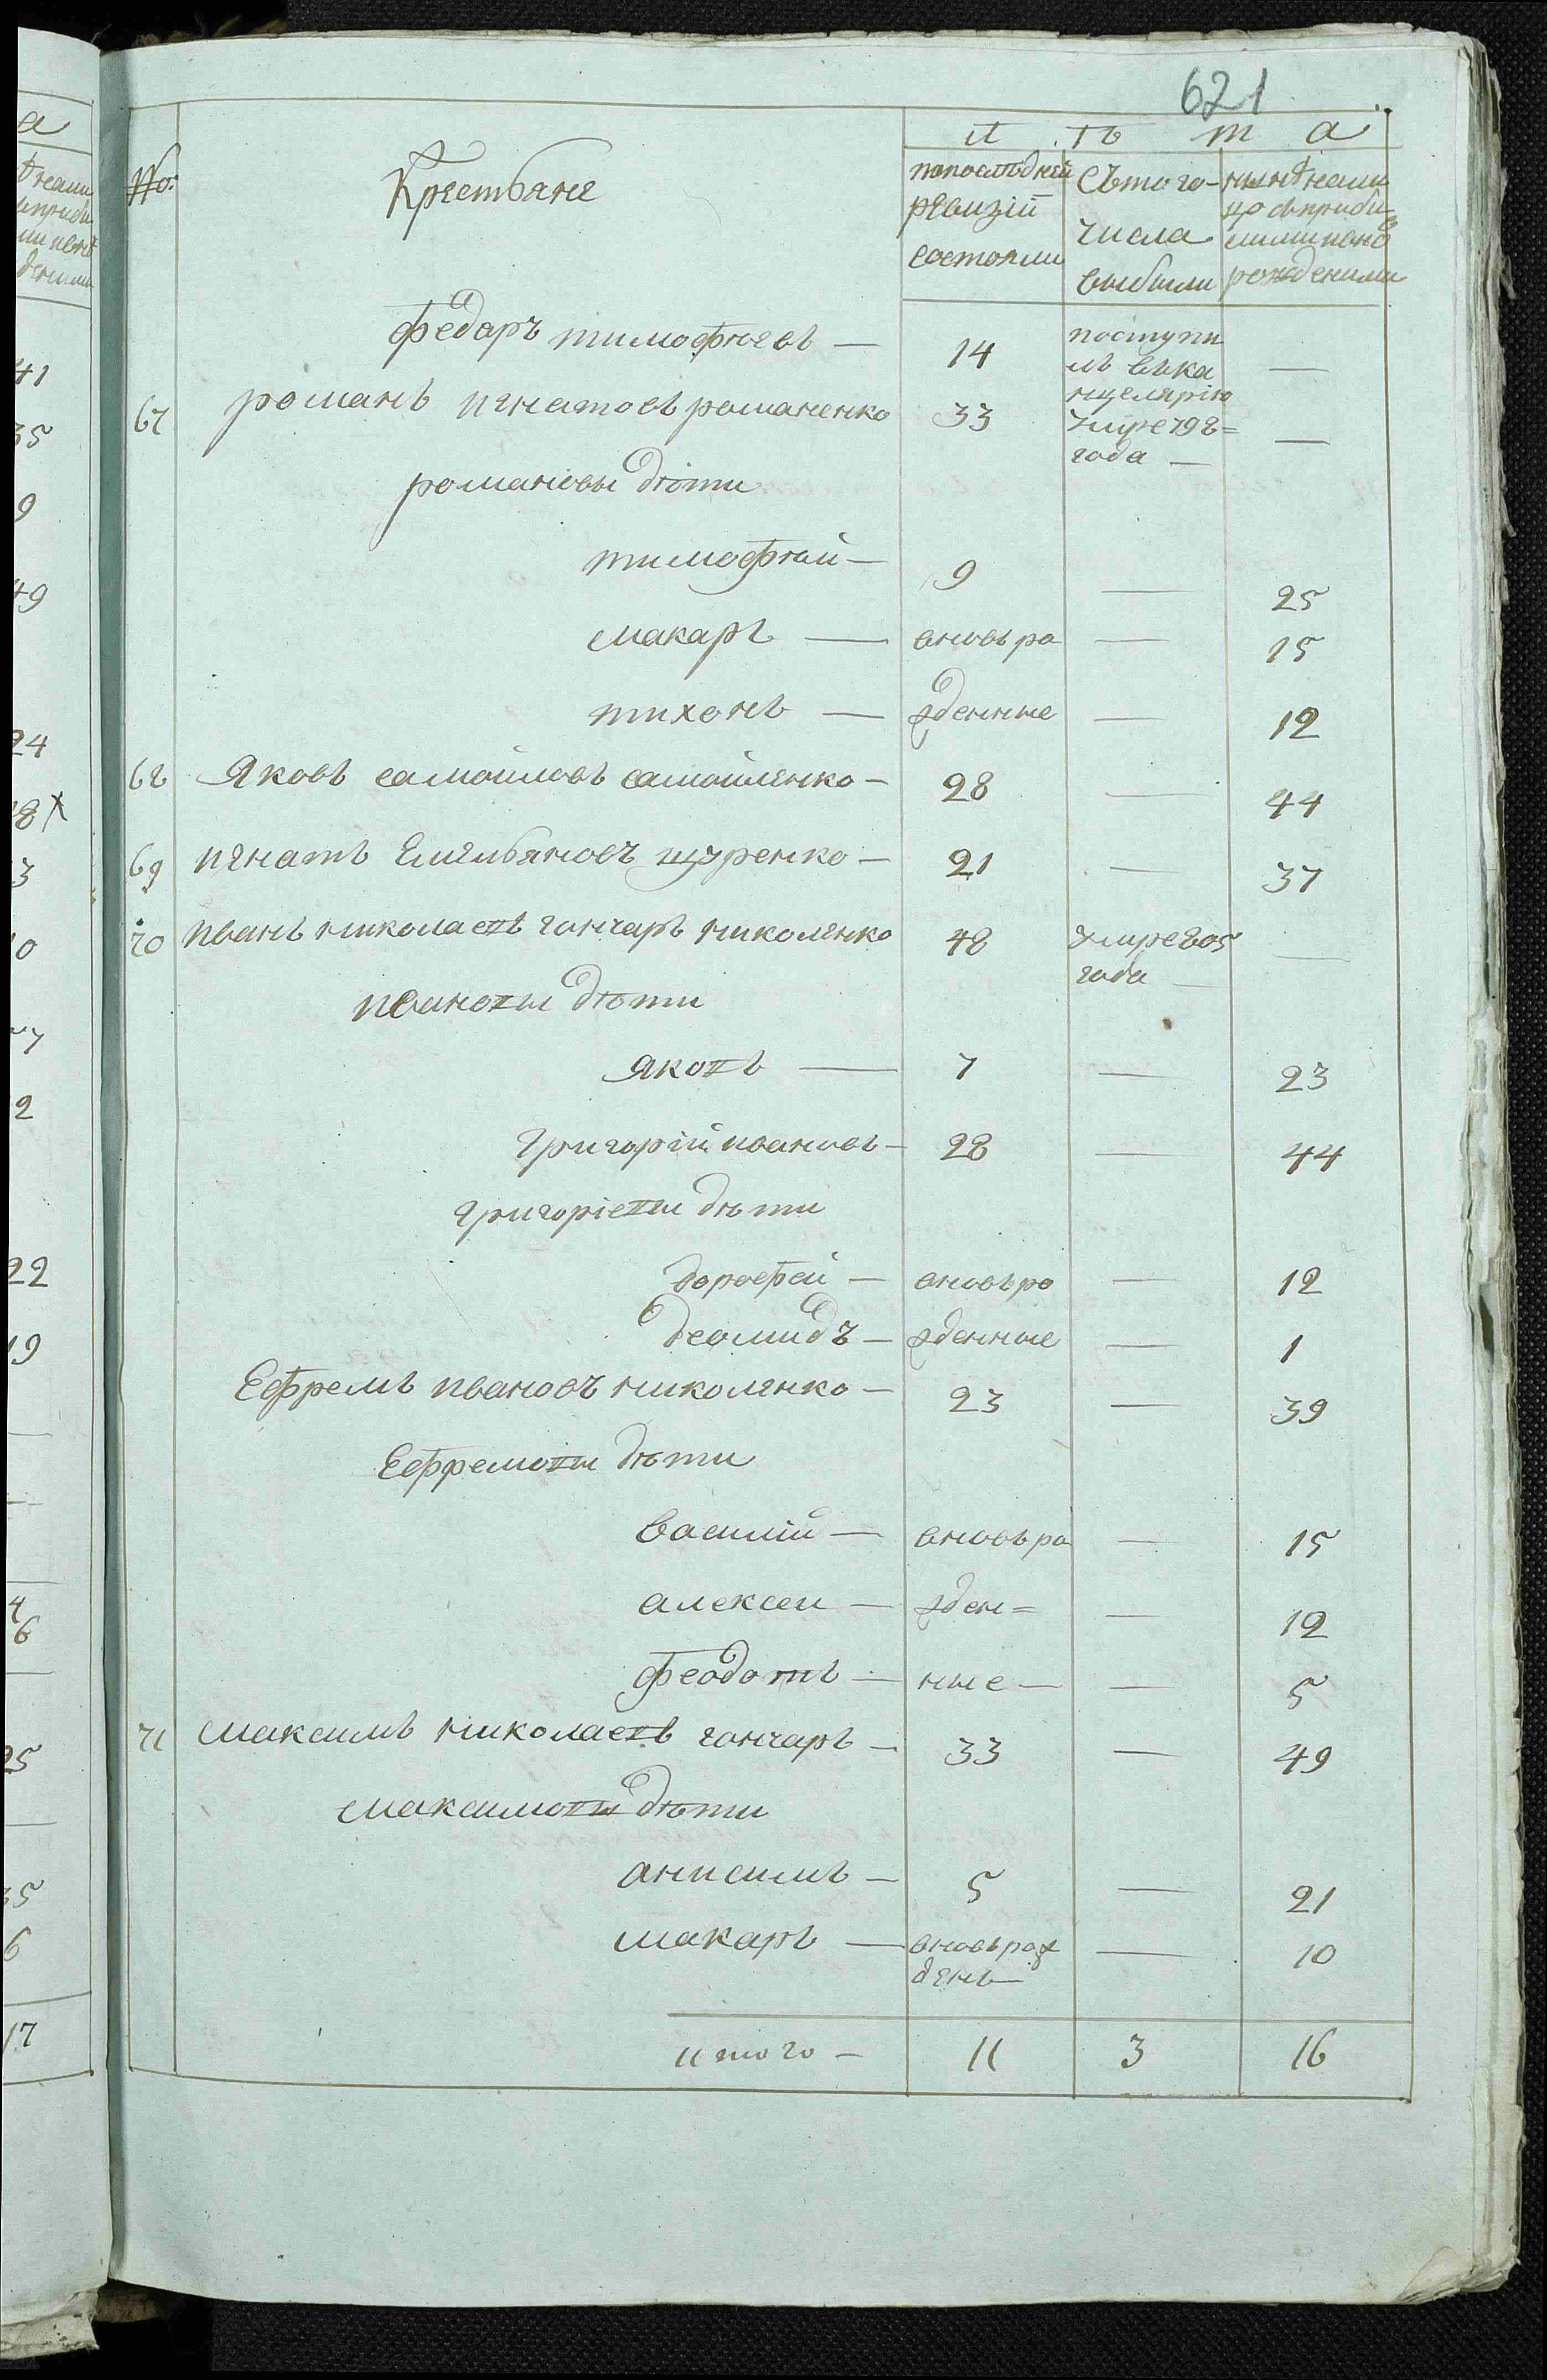 621
Л ѣ т а
№: Крестьяне
попоследней ревизіи состояли
Съ того числа выбыли
нынѣ на ли цо съ прибы лыми и вновь рожденными
Федаръ тимофѣевъ — 14 поступи лъ въ ка нцелярію —
67 романъ игнатовъ романенко 33 умре 798= года — —
романовы дѣти
тимофѣй — 9 — 25
макаръ — вновь ро — 15
тихонъ — жденные — 12
68 Яковъ самойловъ самойленко — 28 — 44
69 игнатъ Емельяновъ щуренко — 21 — 37
70 иванъ николаевъ гончаръ николенко 48 умре 805 года — —
ивановы дѣти
яковъ — 7 — 23
Григорій ивановъ — 28 — 44
григоріевы дѣти
дорофей — вновь ро — 12
деомидъ — жденные — 1
Ефремъ ивановъ николенко — 23 — 39
Ефремовы дѣти
василій — вновь ро — 15
алексеи — жден= — 12
феодотъ — ные — — 5
71 максимъ николаевъ гончаръ — 33 — 49
максимовы дѣти
анисимъ — 5 — 21
макаръ — вновь рож денъ — — 10
итого — 11 3 16